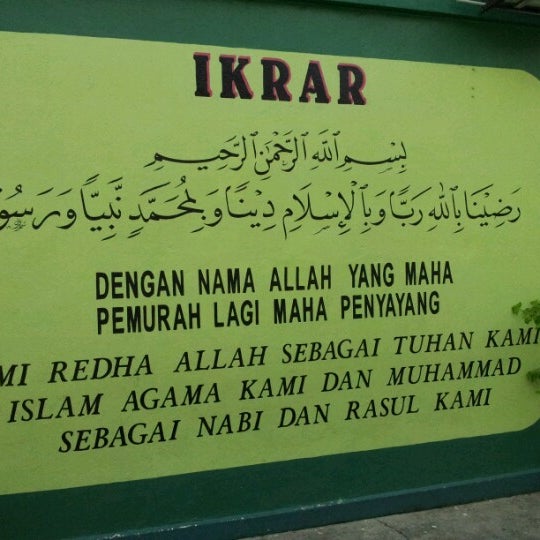 IKRAR
بِسْمِ اللَّهِ الرَّحْمَٰنِ الرَّحِيمِ
رَضِيْنَا بِاللَّهِ رَبًّا وَبِالْإِسْلَامِ دِيْنًا وَبِمُحَمَّدٍ نَّبِيًّا وَرَسُوْ
DENGAN NAMA ALLAH YANG MAHA
PEMURAH LAGI MAHA PENYAYANG
MI REDHA ALLAH SEBAGAI TUHAN KAMI
ISLAM AGAMA KAMI DAN MUHAMMAD
SEBAGAI NABI DAN RASUL KAMI